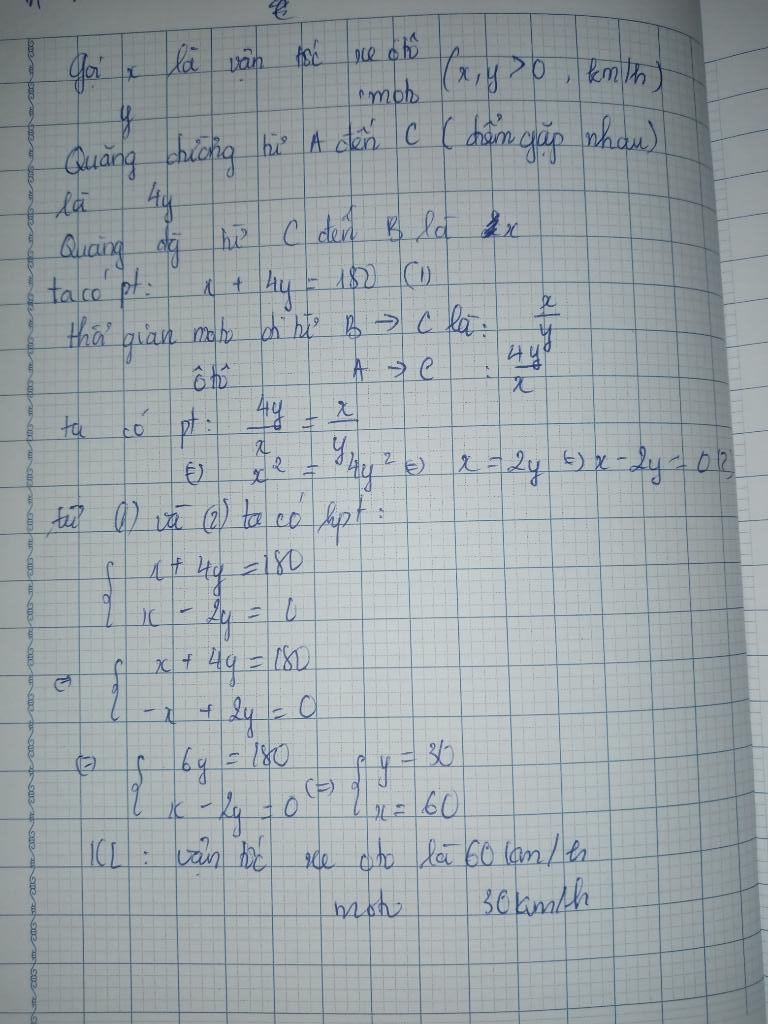 Gọi x là vận tốc xe ôtô (x, y > 0, km/h)
y moto
Quãng đường từ A đến C (điểm gặp nhau)
là 4y
Quãng đg từ C đến B là x
ta có pt: x + 4y = 180 (1)
thời gian moto đi từ B → C là: x/y
ôtô A → C : 4y/x
ta có pt: 4y/x = x/y
(=) x² = 4y² (=) x = 2y (=) x - 2y = 0 (2)
từ (1) và (2) ta có hpt:
{ x + 4y = 180
x - 2y = 0
(=) { x + 4y = 180
-x + 2y = 0
(=) { 6y = 180 (=) { y = 30
x - 2y = 0 x = 60
KL: vận tốc xe oto là 60 km/h
moto 30 km/h